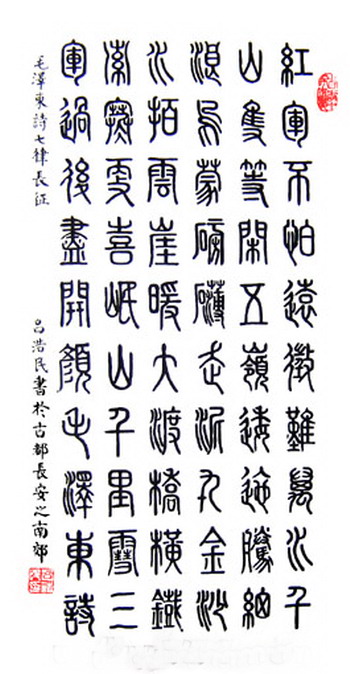 紅軍不怕遠徵難萬水千
山隻等閑五嶺逶迤騰細
浪烏蒙磅礴走泥丸金沙
水拍雲崖暖大渡橋橫鐵
索寒更喜岷山千里雪三
軍過後盡開顏毛澤東詩
毛澤東詩七律長征
吕浩民書於古都長安之南郊